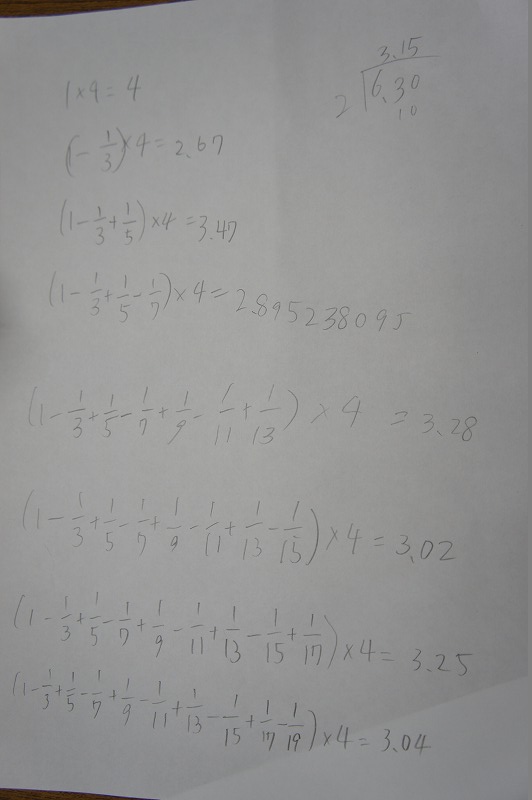 1×4 = 4
(1 - 1/3)×4 = 2.67
(1 - 1/3 + 1/5)×4 = 3.47
(1 - 1/3 + 1/5 - 1/7)×4 = 2.895238095
(1 - 1/3 + 1/5 - 1/7 + 1/9 - 1/11 + 1/13)×4 = 3.28
(1 - 1/3 + 1/5 - 1/7 + 1/9 - 1/11 + 1/13 - 1/15)×4 = 3.02
(1 - 1/3 + 1/5 - 1/7 + 1/9 - 1/11 + 1/13 - 1/15 + 1/17)×4 = 3.25
(1 - 1/3 + 1/5 - 1/7 + 1/9 - 1/11 + 1/13 - 1/15 + 1/17 - 1/19)×4 = 3.04
3.15
2 6.30
10